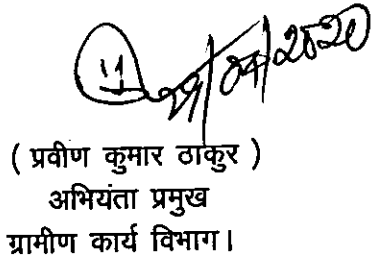 ( प्रवीण कुमार ठाकुर )
अभियंता प्रमुख
ग्रामीण कार्य विभाग।